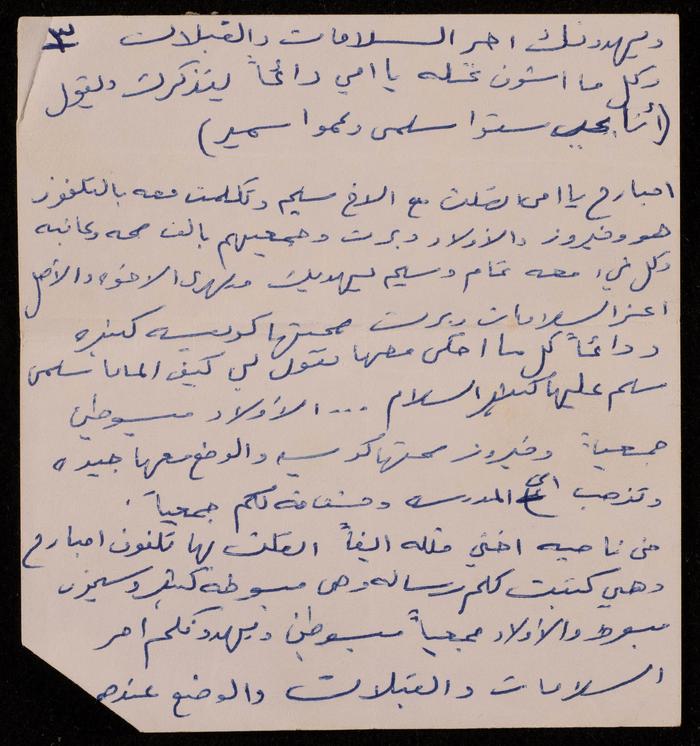 ٣
ويهدونك احر السلامات والقبلات
وكل ما اشوف يا امي دائماً ليتذكرك ويقول
(أنا بحب ستوا سلمى وعموا سمير)
امبارح يا امي اتصلت مع الاخ سليم وتكلمت معه بالتلفون
هو وفيروز والأولاد وبرت وجمعيهم بالف صحه وعافيه
وكل شيء معه تمام وسليم يهديك ويهدي الاخوه والأهل
اعز السلامات وبرت صحتها كويسه كثيره
ودائماً كل ما احكي معها تقول لي كيف الماما سلمى
سلم عليها كثير السلام ... الأولاد مبسوطين
جمعياً وفيروز صحتها كويسه والوضع معها جيده
وتذهب الى المدرسه ومشتاقه لكم جمعياً.
من ناحيه اختي ايضاً اتصلت لها تلفون امبارح
وهي كتبت لكم رساله وهي مبسوطه كثير وسيمون
مبسوط والأولاد جمعياً مبسوطين ويهدونكم احر
السلامات والقبلات والوضع عندهم